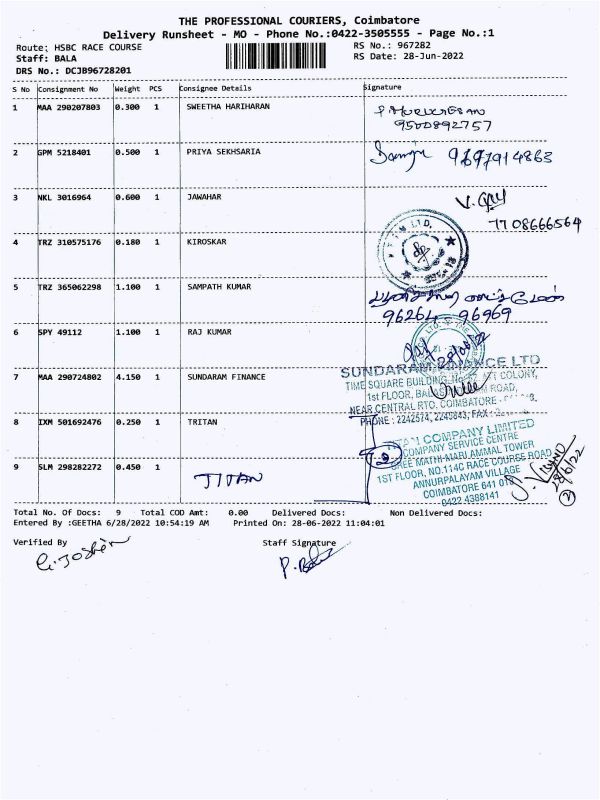 THE PROFESSIONAL COURIERS, Coimbatore
Delivery Runsheet - MO - Phone No.:0422-3505555 - Page No.:1
Route: HSBC RACE COURSE RS No.: 967282
Staff: BALA RS Date: 28-Jun-2022
DRS No.: DCJB96728201
S No Consignment No Weight PCS Consignee Details Signature
1 MAA 290207803 0.300 1 SWEETHA HARIHARAN
9500892757
2 GPM 5218401 0.500 1 PRIYA SEKHSARIA
3 NKL 3016964 0.600 1 JAWAHAR
7708666564
4 TRZ 310575176 0.180 1 KIROSKAR
5 TRZ 365062298 1.100 1 SAMPATH KUMAR
96264 - 96969
6 SPY 49112 1.100 1 RAJ KUMAR
SUNDARAM FINANCE LTD
7 MAA 290724802 4.150 1 SUNDARAM FINANCE
TIME SQUARE BUILDING, COLONY,
1st FLOOR, ROAD,
NEAR CENTRAL RTO. COIMBATORE -
PHONE : 2242574, 2245843, FAX :
8 IXM 501692476 0.250 1 TRITAN
COMPANY LIMITED
COMPANY SERVICE CENTRE
SREE MATHI MARI AMMAL TOWER
9 SLM 298282272 0.450 1
TITAN
1ST FLOOR, NO.114C RACE COURSE ROAD
ANNURPALAYAM VILLAGE
COIMBATORE 641 018
0422 4388141
28/6/22
2
Total No. Of Docs: 9 Total COD Amt: 0.00 Delivered Docs: Non Delivered Docs:
Entered By :GEETHA 6/28/2022 10:54:19 AM Printed On: 28-06-2022 11:04:01
Verified By Staff Signature